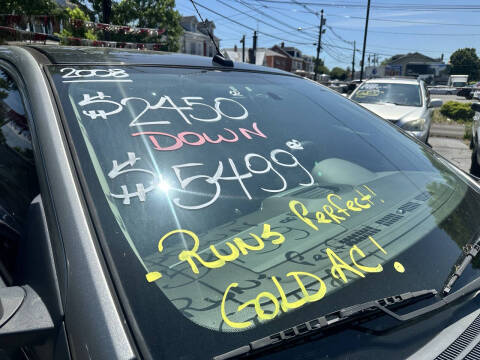 2008
$2450
DOWN
$5499
- RUNS PERFECT!
COLD AC!